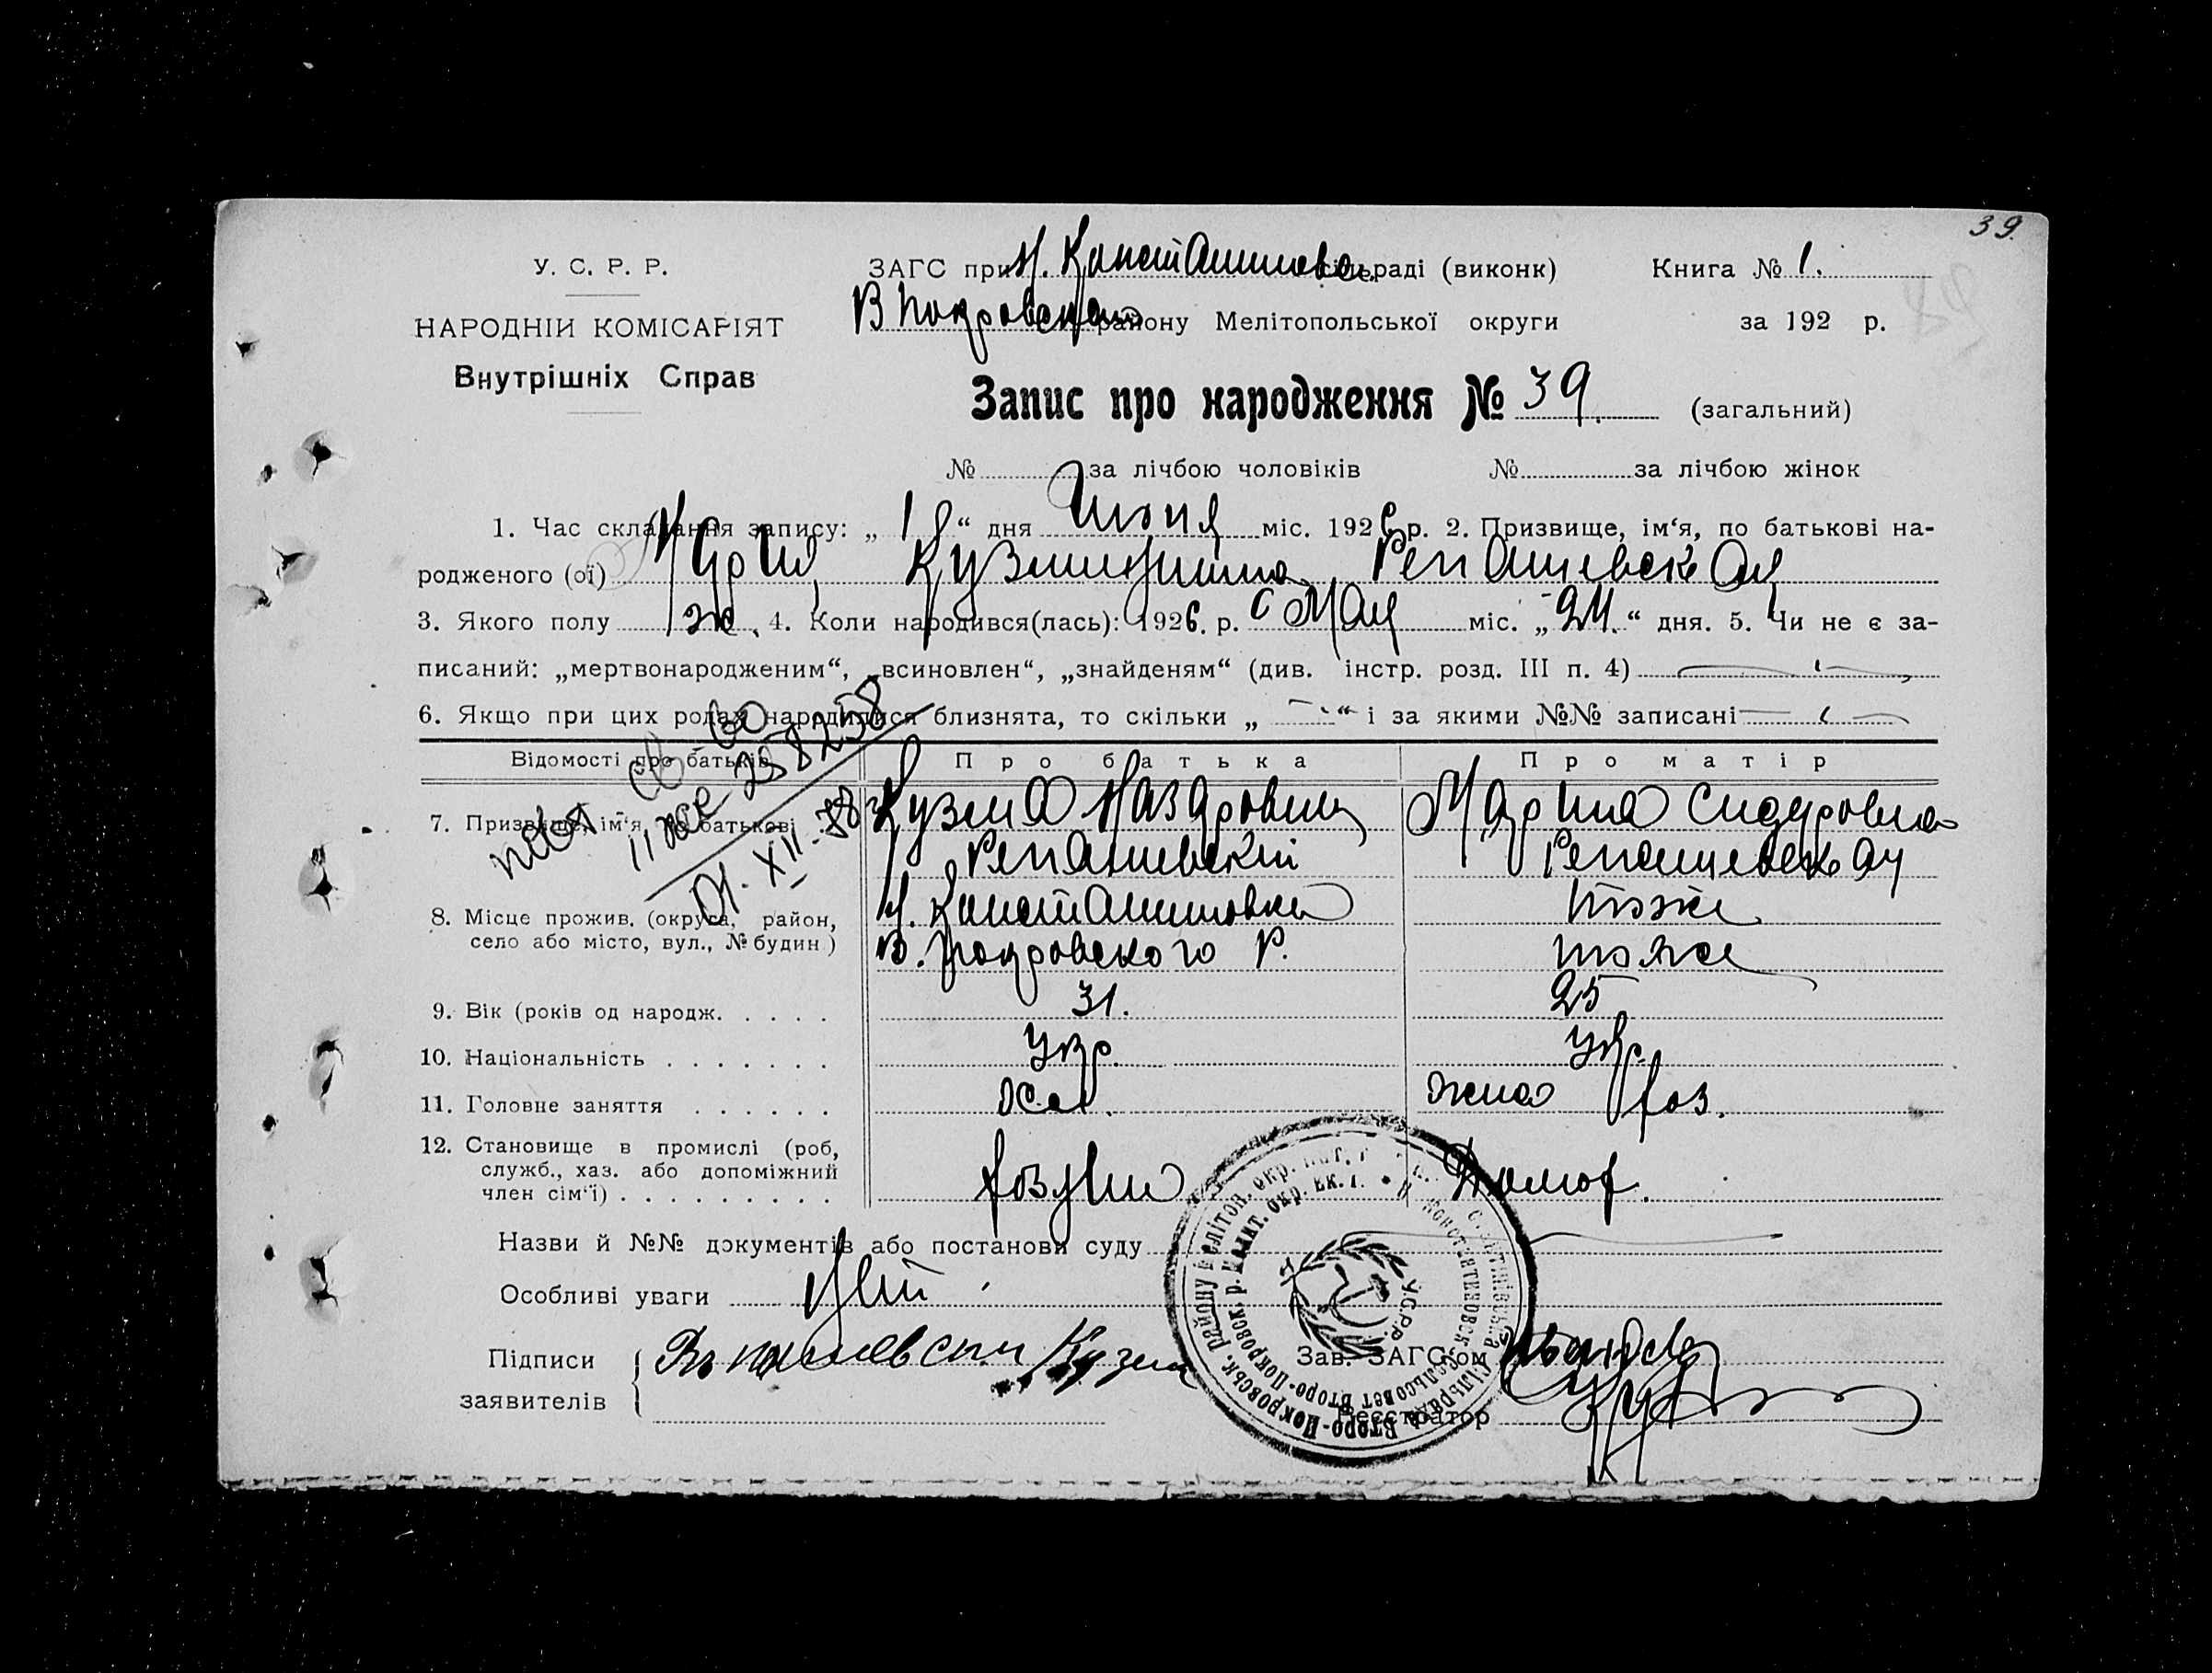 39.
У. С. Р. Р.
НАРОДНІЙ КОМІСАРІЯТ
Внутрішніх Справ
ЗАГС при Н. Константинове сільраді (виконк) Книга № 1.
В Покровском району Мелітопольської округи за 192 р.
Запис про народження № 39. (загальний)
№ за лічбою чоловіків № за лічбою жінок
1. Час складання запису: „18“ дня Июня міс. 1926 р. 2. Призвище, ім‘я, по батькові на-
родженого (ої) Мария Кузминишна Репашевская
3. Якого полу ж. 4. Коли народився(лась): 1926. р. Мая міс. „24.“ дня. 5. Чи не є за-
писаний: „мертвонародженим“, „всиновлен“, „знайденям“ (див. інстр. розд. III п. 4)
6. Якщо при цих родах народилися близнята, то скільки „ “ і за якими №№ записані
Відомості про батьків Про батька Про матір
7. Призвище, ім‘я, по батькові Кузма Назарович Марина Сидоровна
Репашевский Репашевская
8. Місце прожив. (округа, район, Н. Константиновка тоже
село або місто, вул., № будин.) В. Покровского Р. тоже
9. Вік (років од народж. 31. 25
10. Національність Укр. Укр.
11. Головне заняття хлеб. жена хоз.
12. Становище в промислі (роб, служб., хаз. або допоміжний член сім‘ї) хозяин Домох.
повт. св-во
II ЖС 258258
01. XII-78
Назви й №№ документів або постанови суду
Особливі уваги Нет
Підписи Репашевский Кузма Зав. ЗАГС‘ом
заявителів Реєстратор
У.С.Р.Р.